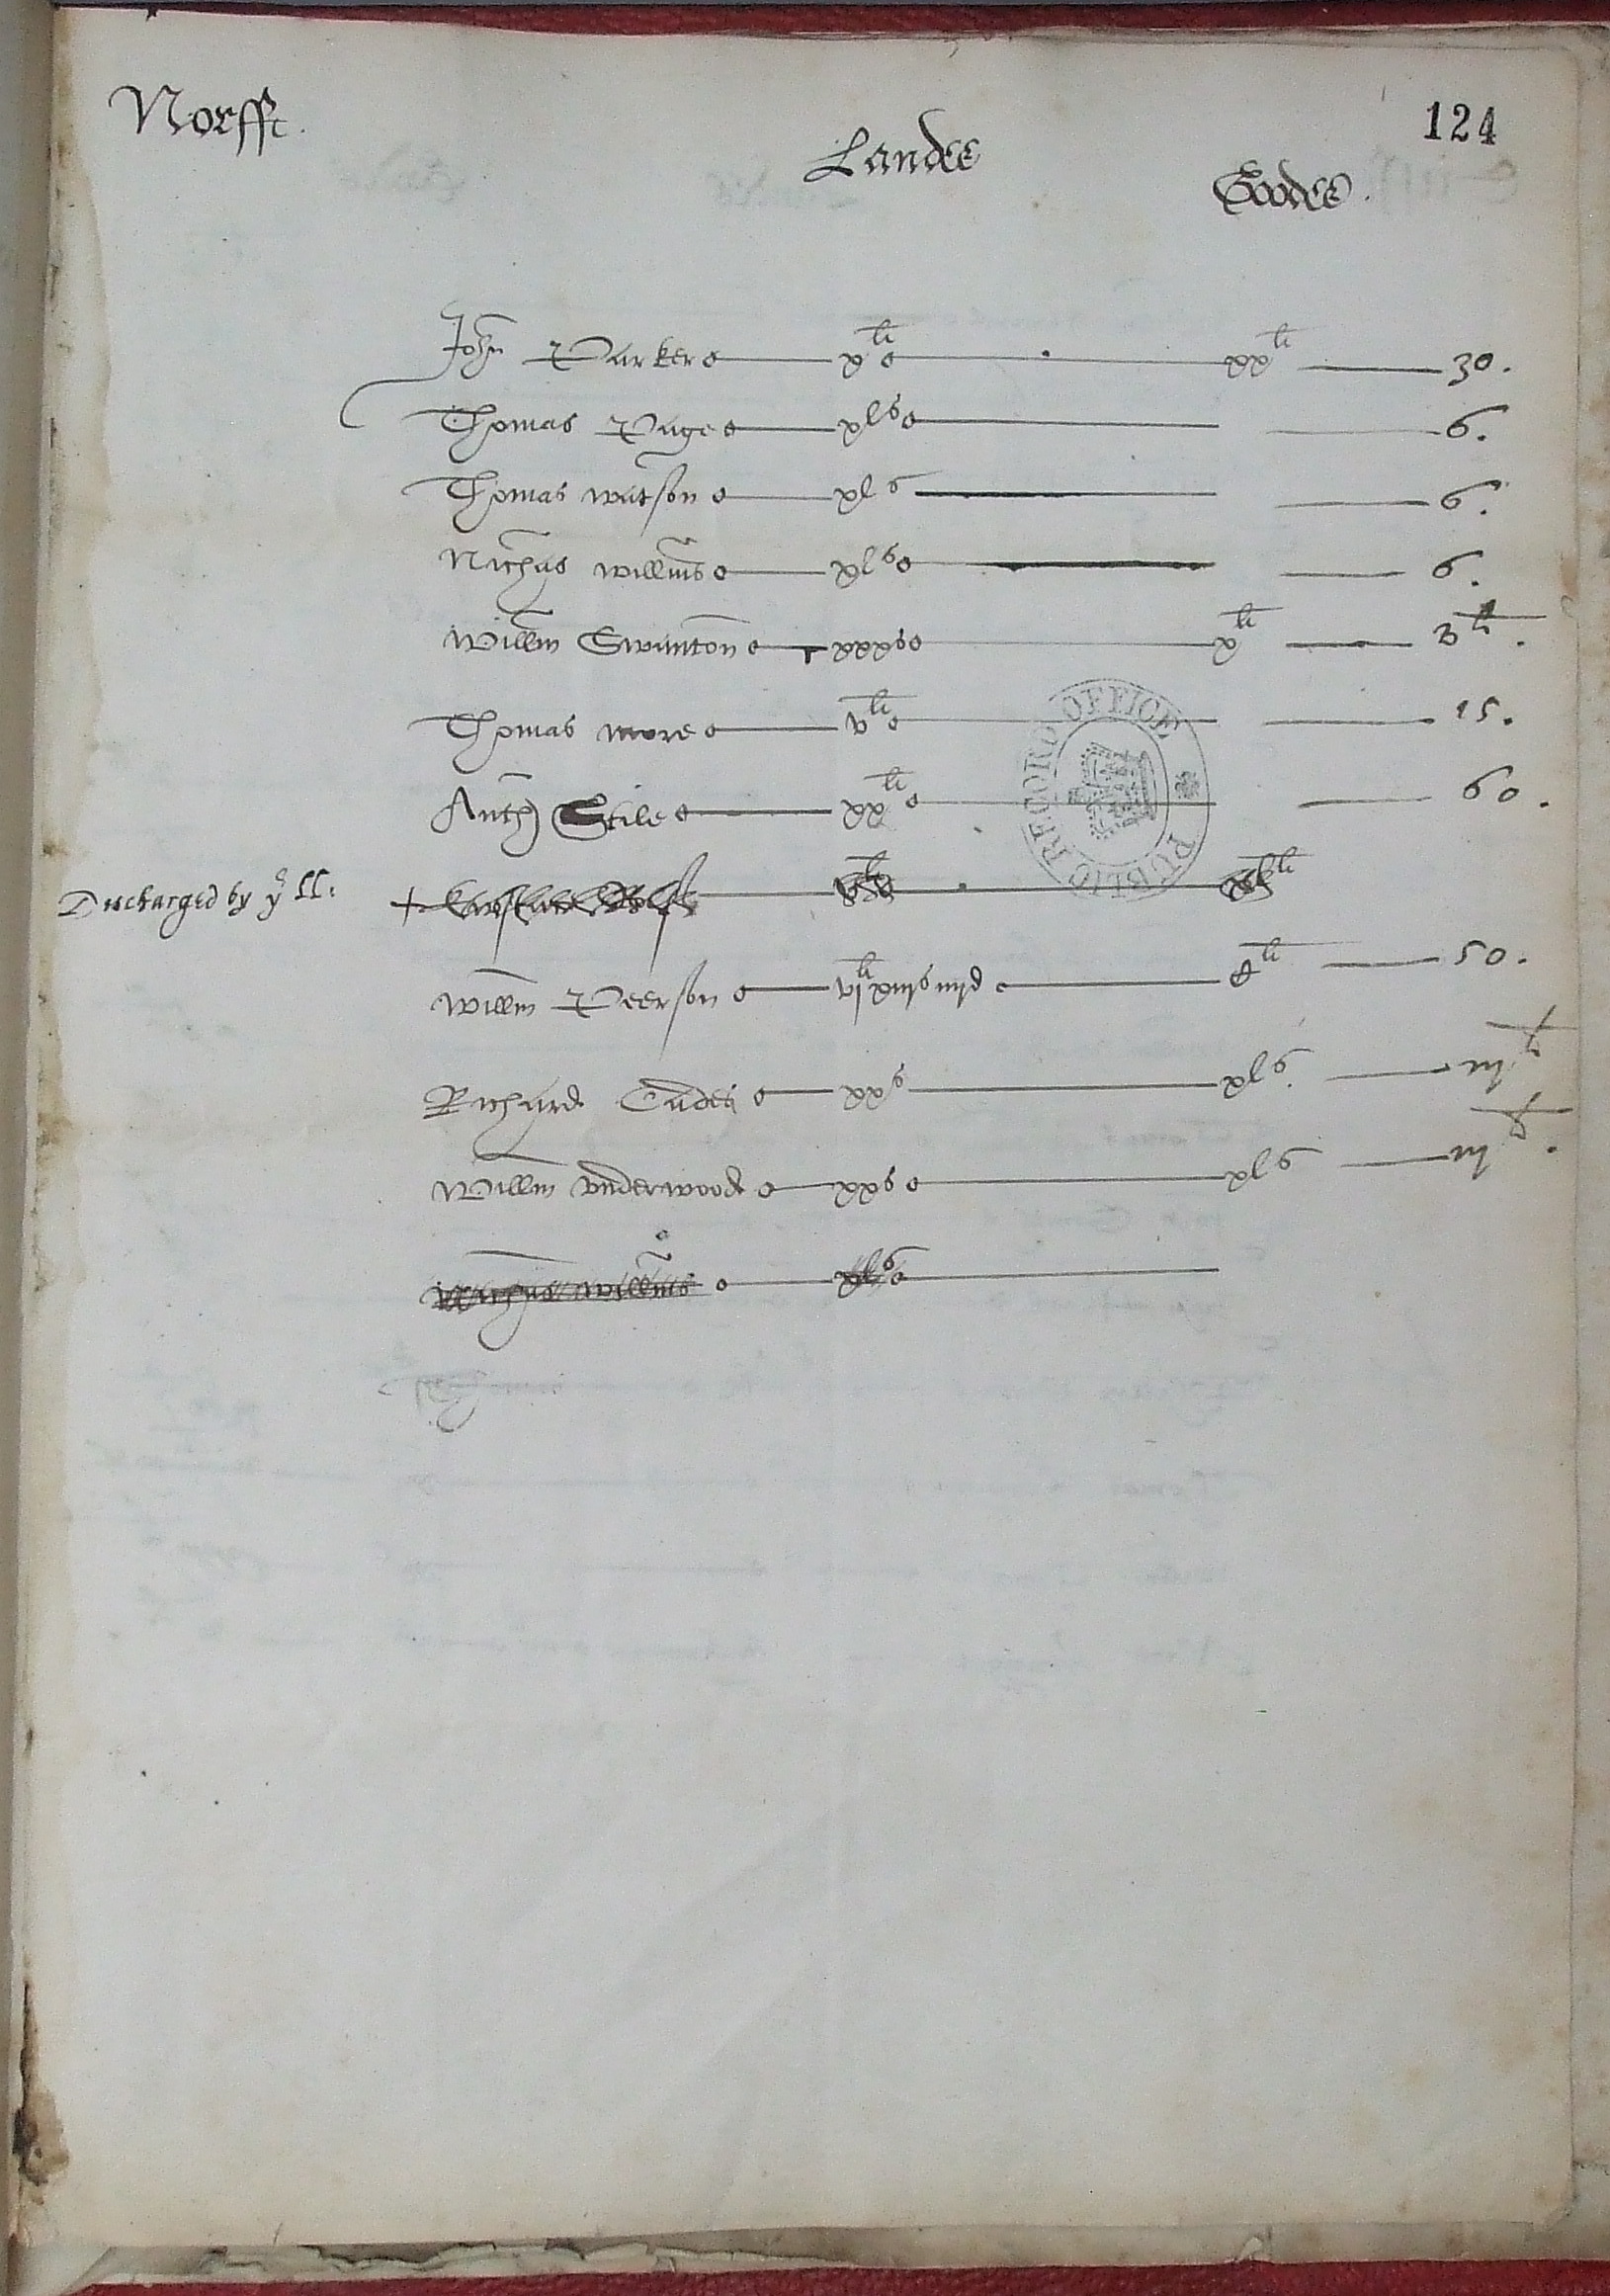 Norffc.
124
Landes
Goodes.
John Parker x li xx li 30.
Thomas Page xl s 6.
Thomas Watson xl s 6.
Nichas Willms xl s 6.
Willm Swanton xxx s x li li.
Thomas More v li 15.
PUBLIC RECORD OFFICE
Anth Stile xx li 60.
Discharged by ye ll: +
Willm Peerson vj li xiij s iiij d C li 50.
Richard Cades xx s xl s iij li
Willm Underwood xx s xl s iij li.
Nichas Willms xl s